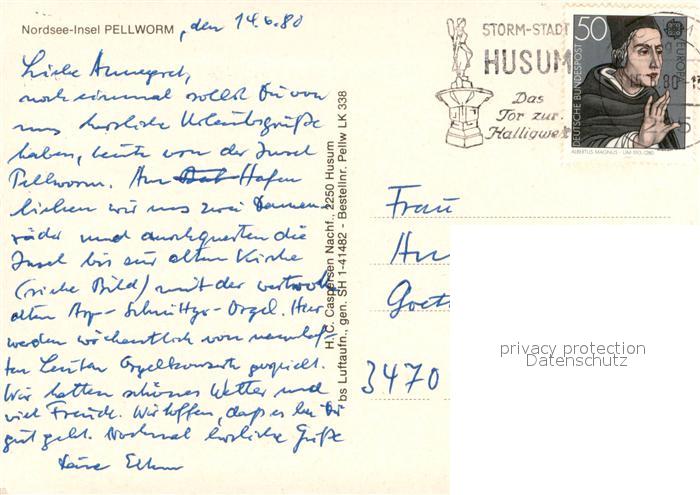 Nordsee-Insel PELLWORM, den 14.6.80
Liebe Annegret,
noch einmal sollst Du von
uns herzliche Urlaubsgrüße
haben, heute von der Insel
Pellworm. Am Hafen
liehen wir uns zwei Damen-
räder und durchquerten die
Insel bis zur alten Kirche
(siehe Bild) mit der wertvollen
alten Arp-Schnittger-Orgel. Hier
werden wöchentlich von namhaf-
ten Leuten Orgelkonzerte gespielt.
Wir hatten schönes Wetter und
viel Freude. Wir hoffen, daß es bei Dir
gut geht. Nochmal herzliche Grüße
Deine
H. C. Caspersen Nachf., 2250 Husum
bs Luftaufn., gen. SH 1-41482 - Bestellnr. Pellw LK 338
STORM-STADT
HUSUM
Das
Tor zur
Halligwelt
50
DEUTSCHE BUNDESPOST
EUROPA
ALBERTUS MAGNUS · UM 1193-1280
Frau
An
Goet
3470
privacy protection
Datenschutz